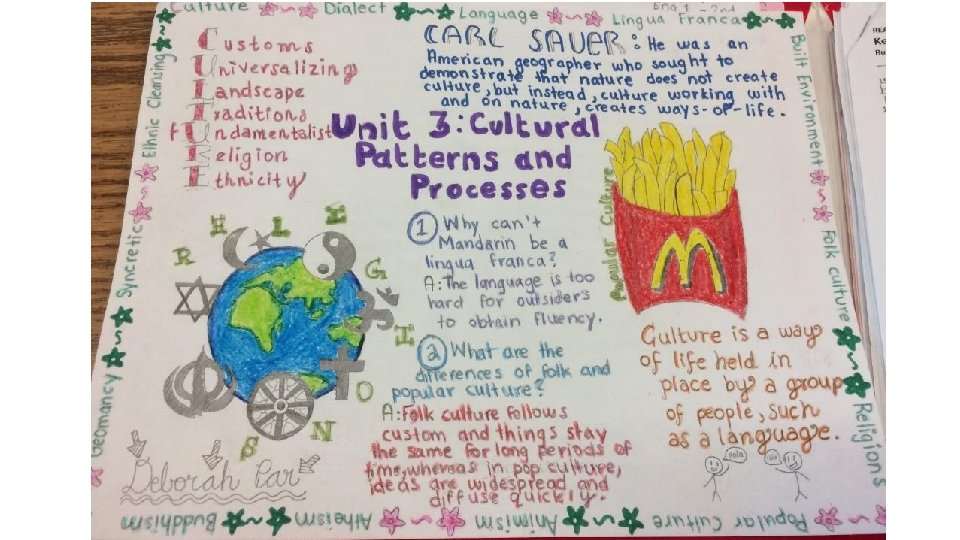 Culture Dialect Language Lingua Franca
Built Environment Folk culture Religions
Popular Culture Animism Atheism Buddhism
Geomancy Syncretic Ethnic Cleansing
Customs
Universalizing
Landscape
Traditions
FUndamentalist
Religion
Ethnicity
CARL SAUER: He was an
American geographer who sought to
demonstrate that nature does not create
culture, but instead, culture working with
and on nature, creates ways-of-life.
Unit 3: Cultural
Patterns and
Processes
RELIGIONS
1 Why can't
Mandarin be a
lingua franca?
A: The language is too
hard for outsiders
to obtain fluency.
2 What are the
differences of folk and
popular culture?
A: Folk culture follows
custom and things stay
the same for long periods of
time, whereas in pop culture,
ideas are widespread and
diffuse quickly.
Popular Culture
M
Culture is a way
of life held in
place by a group
of people, such
as a language.
Hola
Deborah Car